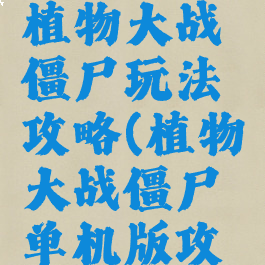 植物大战
僵尸玩法
攻略(植物
大战僵尸
单机版攻